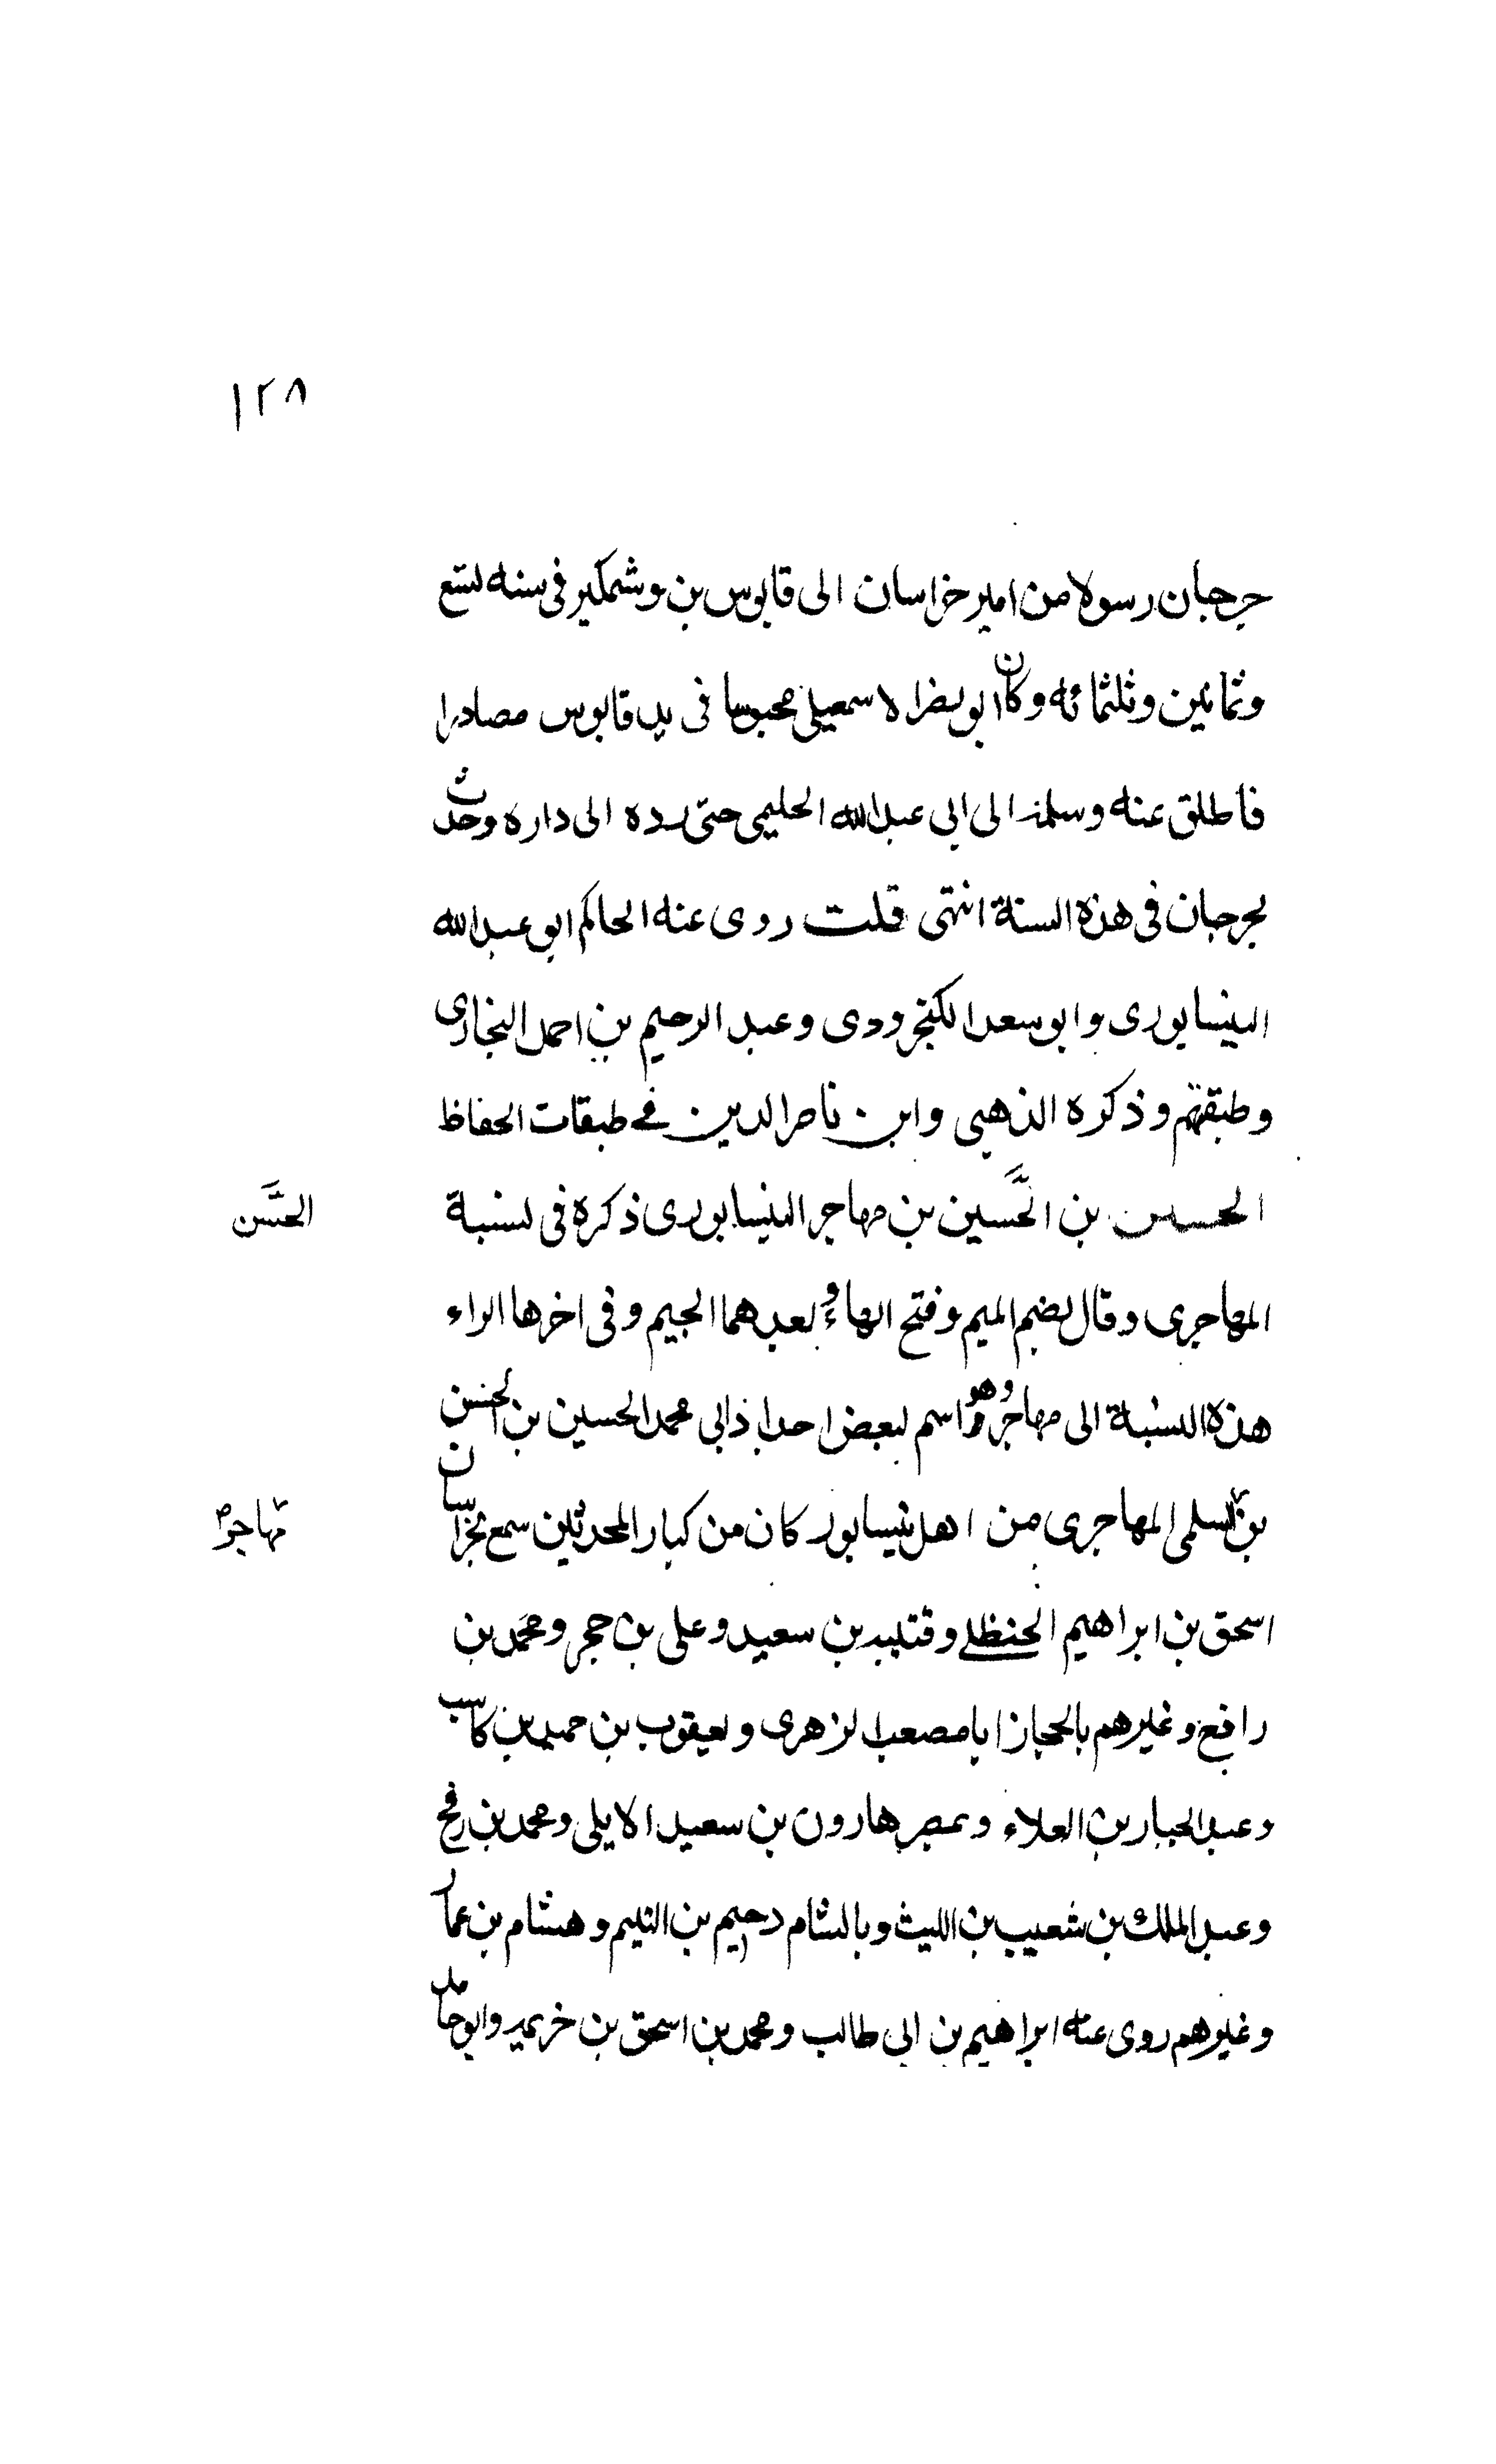 ١٢٨
جرجان رسولا من امير خراسان الى قابوس بن وشمكير فى سنه تسع
وثمانين وثلثمائه وكان ابو نصر الاسمعيلى محبوسا فى يد قابوس مصادرا
فاطلق عنه وسلمه الى ابى عبد الله الحليمى حتى رده الى داره وحدث
بجرجان فى هذه السنة انتهى قلت روى عنه الحاكم ابو عبد الله
النيسابورى وابو سعد الكنجرودى وعبد الرحيم بن احمد البخارى
وطبقتهم وذكره الذهبى وابن ناصر الدين فى طبقات الحفاظ
الحسين بن الحسين بن مهاجر النيسابورى ذكره فى نسبة
الحسن
المهاجرى وقال بضم الميم وفتح الهاء وبعدهما الجيم وفى اخرها الراء
هذه النسبة الى مهاجر وهو اسم لبعض اجداد ابى محمد الحسين بن الحسن
بن السلمى المهاجرى من اهل نيسابور كان من كبار المحدثين سمع بخراسان
مهاجر
اسحق بن ابراهيم الحنظلى وقتيبه بن سعيد وعلى بن حجر ومحمد بن
رافع وغيرهم بالحجاز ابا مصعب الزهرى ويعقوب بن حميد بن كاسب
وعبد الجبار بن العلاء وبمصر هارون بن سعيد الايلى ومحمد بن رمح
وعبد الملك بن شعيب بن الليث وبالشام دحيم بن اليتيم وهشام بن عمار
وغيرهم روى عنه ابراهيم بن ابى طالب ومحمد بن اسحق بن خزيمه وابو حامد